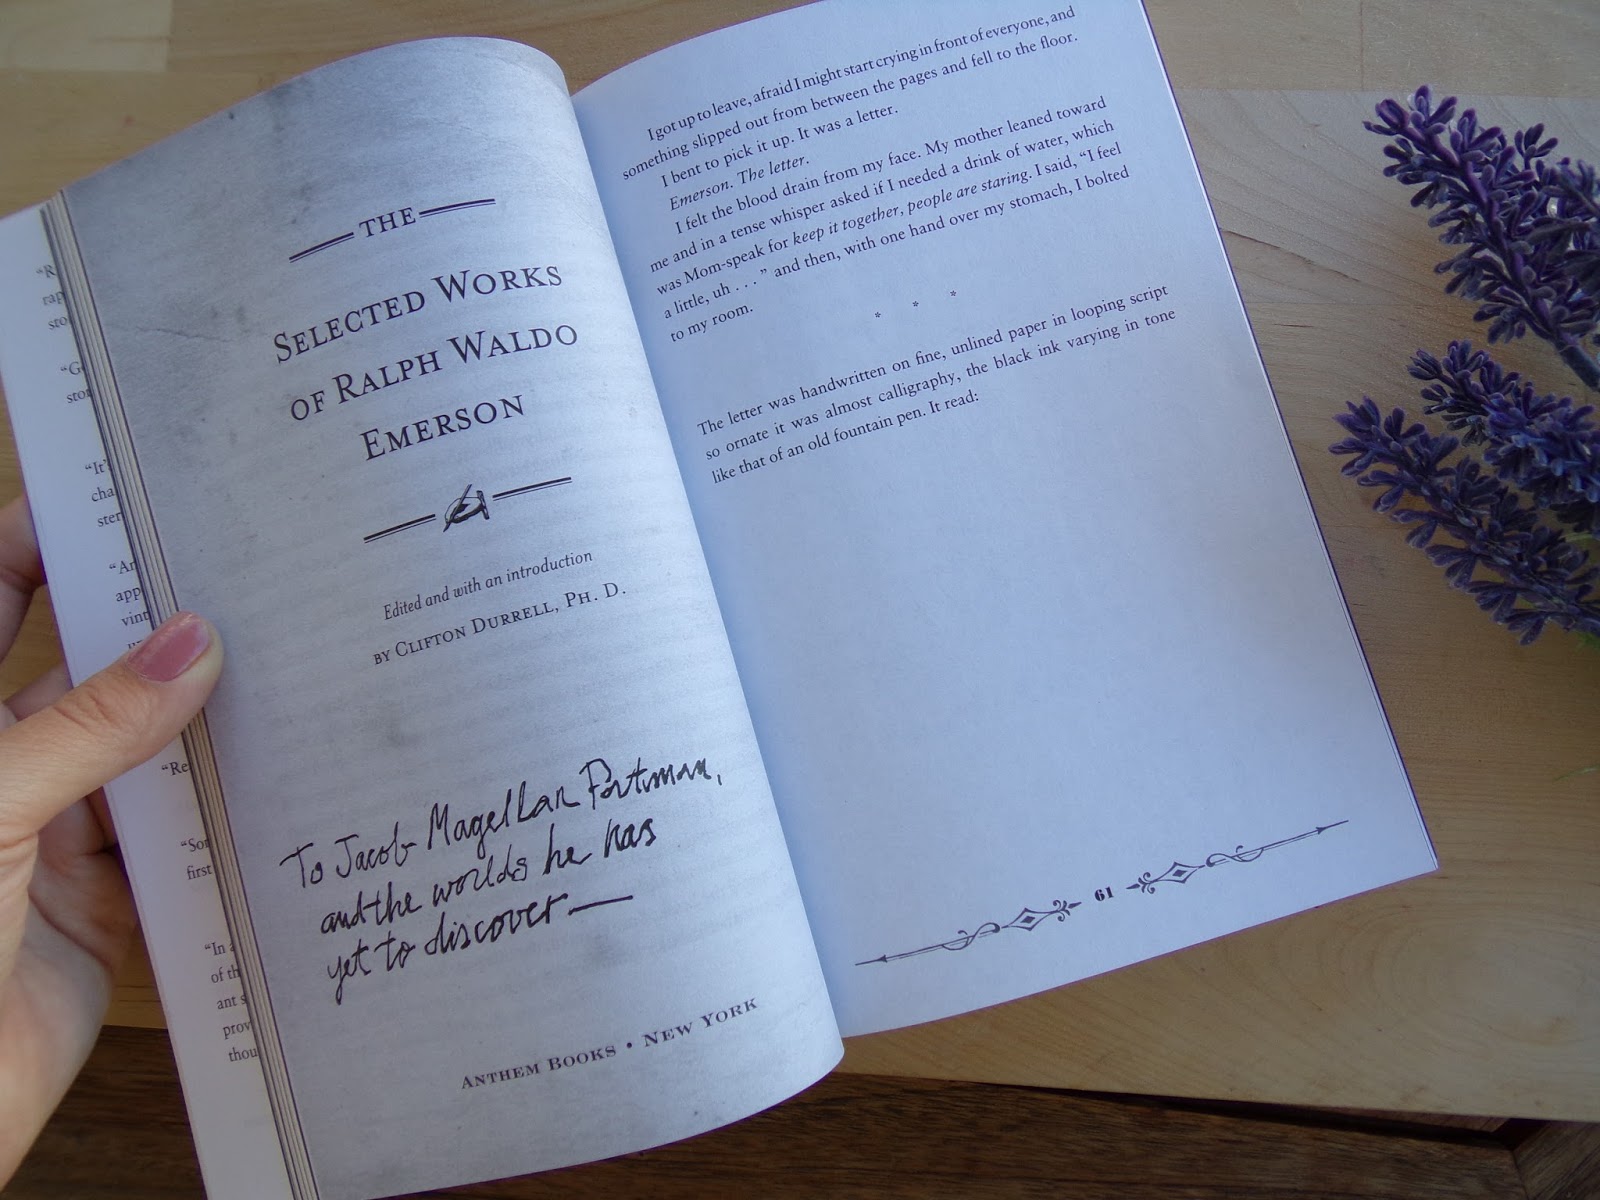 THE
SELECTED WORKS
OF RALPH WALDO
EMERSON
Edited and with an introduction
BY CLIFTON DURRELL, PH. D.
To Jacob Magellan Portman,
and the worlds he has
yet to discover—
ANTHEM BOOKS • NEW YORK
I got up to leave, afraid I might start crying in front of everyone, and
something slipped out from between the pages and fell to the floor.
I bent to pick it up. It was a letter.
Emerson. The letter.
I felt the blood drain from my face. My mother leaned toward
me and in a tense whisper asked if I needed a drink of water, which
was Mom-speak for keep it together, people are staring. I said, “I feel
a little, uh . . .” and then, with one hand over my stomach, I bolted
to my room.
* * *
The letter was handwritten on fine, unlined paper in looping script
so ornate it was almost calligraphy, the black ink varying in tone
like that of an old fountain pen. It read:
61